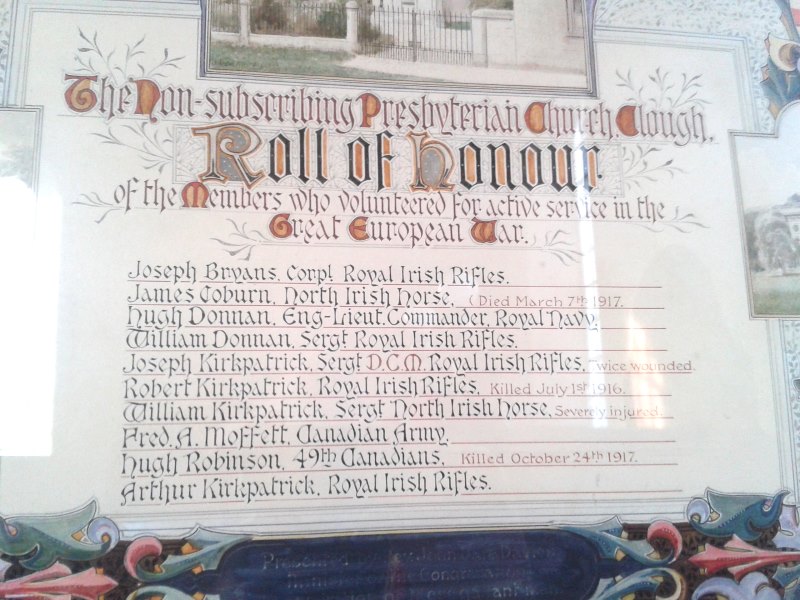 The Non-subscribing Presbyterian Church, Clough.
Roll of Honour
of the Members who volunteered for active service in the
Great European War.
Joseph Bryans, Corpl Royal Irish Rifles.
James Coburn, North Irish Horse, (Died March 7th 1917.
Hugh Donnan, Eng-Lieut. Commander, Royal Navy,
William Donnan, Sergt Royal Irish Rifles,
Joseph Kirkpatrick, Sergt D.C.M. Royal Irish Rifles, Twice wounded.
Robert Kirkpatrick, Royal Irish Rifles, Killed July 1st 1916.
William Kirkpatrick, Sergt North Irish Horse, Severely injured.
Fred. A. Moffett, Canadian Army,
Hugh Robinson, 49th Canadians, Killed October 24th 1917.
Arthur Kirkpatrick, Royal Irish Rifles.
Presented